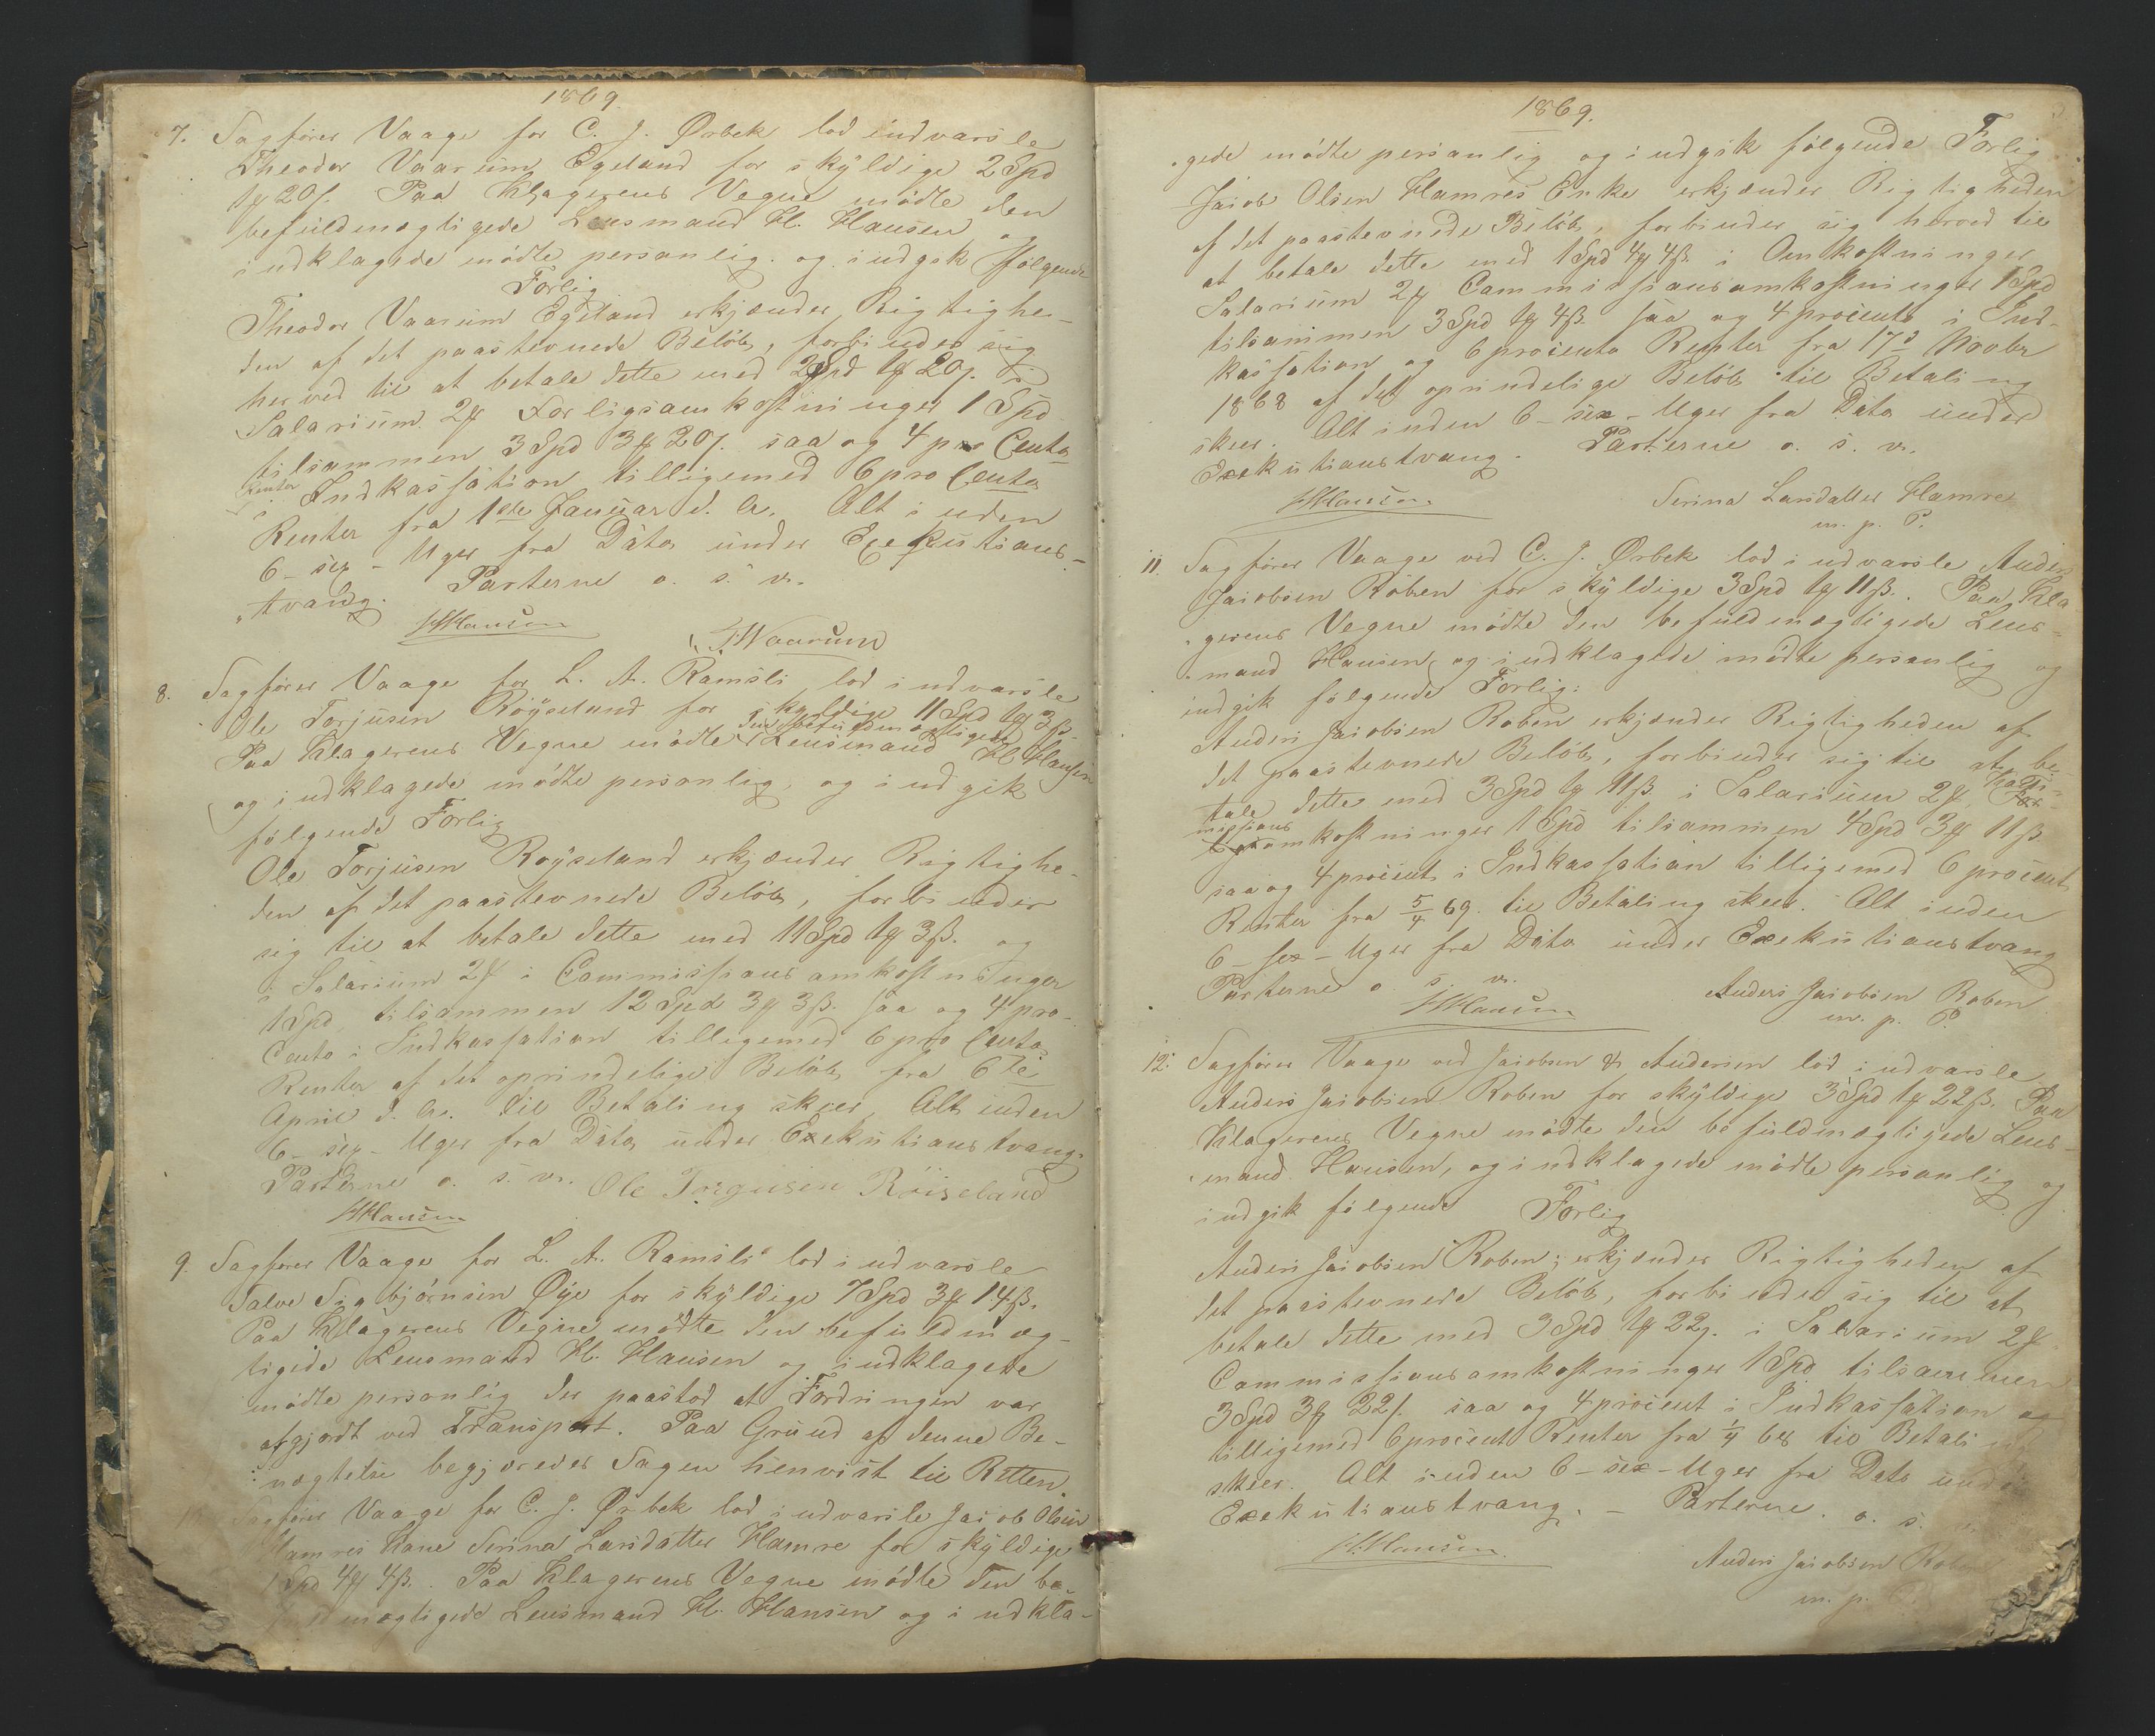 1869.
7. Sagfører Vaage for C. J. Ørbek lod indvarsle
Theodor Vaarum Egeland for skyldige 2 Spd
1 ₰ 20 ſ. Paa Klagerens Vegne mødte den
befuldmægtigede Lensmand H. Hansen og
indklagede mødte personlig. og indgik følgende
Forlig
Theodor Vaarum Egeland erkjender Rigtighe-
den af det paastevnede Beløb, forbinder sig
herved til at betale dette med 2 Spd 1 ₰ 20 ſ. i
Salarium 2 ₰ Forligsomkostninger 1 Spd
tilsammen 3 Spd 3 ₰ 20 ſ. saa og 4 pro Cento
i Indkassation tilligemed 6 pro Cento
Renter fra 1ste Januar d. A. Alt inden
6 - sex - Uger fra Dato under Exekutions-
tvang. Parterne o. s. v.
HHansen T. Waarum
8. Sagfører Vaage for L. A. Ramsli lod indvarsle
Ole Torjusen Røyseland for skyldige 11 Spd 1 ₰ 3 ß.
Paa Klagerens Vegne mødte den befuldmægtigede Lensmand H. Hansen
og indklagede mødte personlig, og indgik
følgende Forlig
Ole Torjusen Røyseland erkjender Rigtighe-
den af det paastevnede Beløb, forbinder
sig til at betale dette med 11 Spd 1 ₰ 3 ß. og
i Salarium 2 ₰ i Commissionsomkostninger
1 Spd, tilsammen 12 Spd 3 ₰ 3 ß. saa og 4 pro-
Cento i Indkassation tilligemed 6 pro Cento
Renter af det oprindelige Beløb fra 6te
April d. A. til Betaling skeer, Alt inden
6 - sex - Uger fra Dato under Exekutionstvang.
Parterne o. s. v. Ole Torgusen Röiseland
HHansen
9. Sagfører Vaage for L. A. Ramsli lod indvarsle
Salve Sigbjørnsen Øye for skyldige 7 Spd 3 ₰ 14 ß.
Paa Klagerens Vegne mødte den befuldmæg-
tigede Lensmand H. Hansen og indklagede
mødte personlig der paastod at Fordringen var
afgjordt ved Transport. Paa Grund af denne Be-
nægtelse begjæredes Sagen henvist til Retten.
Sagfører Vaage for C. J. Ørbek lod indvarsle Jacob Olsen
Hamres Kone Serina Larsdatter Hamre for skyldige
1 Spd 4 ₰ 4 ß. Paa Klagerens Vegne mødte den be-
fuldmægtigede Lensmand H. Hansen og indkla-
1869.
gede mødte personlig og indgik følgende Forlig
Jacob Olsen Hamres Enke erkjender Rigtigheden
af det paastevnede Beløb, forbinder sig herved til
at betale dette med 1 Spd 4 ₰ 4 ß. i Omkostninger
Salarium 2 ₰ Commissionsomkostninger 1 Spd
tilsammen 3 Spd 1 ₰ 4 ß. saa og 4 procento i Ind-
kassation og 6 procento Renter fra 17d Novbr
1868 af det oprindelige Beløb til Betaling
skeer. Alt inden 6 - sex - Uger fra Dato under
Exekutionstvang. Parterne o. s. v.
HHansen Serina Larsdatter Hamre
m. p. P.
11. Sagfører Vaage ved C. J. Ørbek lod indvarsle Anders
Jacobsen Roben for skyldige 3 Spd 1 ₰ 11 ß. Paa Kla-
gerens Vegne mødte den befuldmægtigede Lens-
mand Hansen, og indklagede mødte personlig og
indgik følgende Forlig:
Anders Jacobsen Roben erkjender Rigtigheden af
det paastevnede Beløb, forbinder sig til at be-
tale dette med 3 Spd 1 ₰ 11 ß i Salarium 2 ₰, Kom-
missionsomkostninger 1 Spd tilsammen 4 Spd 3 ₰ 11 ß
saa og 4 procent i Indkassation tilligemed 6 procent
Renter fra 5/4 69 til Betaling skeer. Alt inden
6 - sex - Uger fra Dato under Exekutionstvang
Parterne o. s. v.
HHansen Anders Jacobsen Roben
m. p. P.
12. Sagfører Vaage ved Jacobsen & Andersen lod indvarsle
Anders Jacobsen Roben for skyldige 3 Spd 1 ₰ 22 ß. Paa
Klagerens Vegne mødte den befuldmægtigede Lens-
mand Hansen, og indklagede mødte personlig og
indgik følgende Forlig
Anders Jacobsen Roben, erkjender Rigtigheden af
det paastevnede Beløb, forbinder sig til at
betale dette med 3 Spd 1 ₰ 22 ſ. i Salarium 2 ₰
Commissionsomkostninger 1 Spd tilsammen
3 Spd 3 ₰ 22 ſ. saa og 4 procent i Indkassation og
tilligemed 6 procent Renter fra 1/4 68 til Betaling
skeer. Alt inden 6 - sex - Uger fra Dato under
Exekutionstvang. - Parterne o. s.
H.Hansen Anders Jacobsen Roben
m. p.